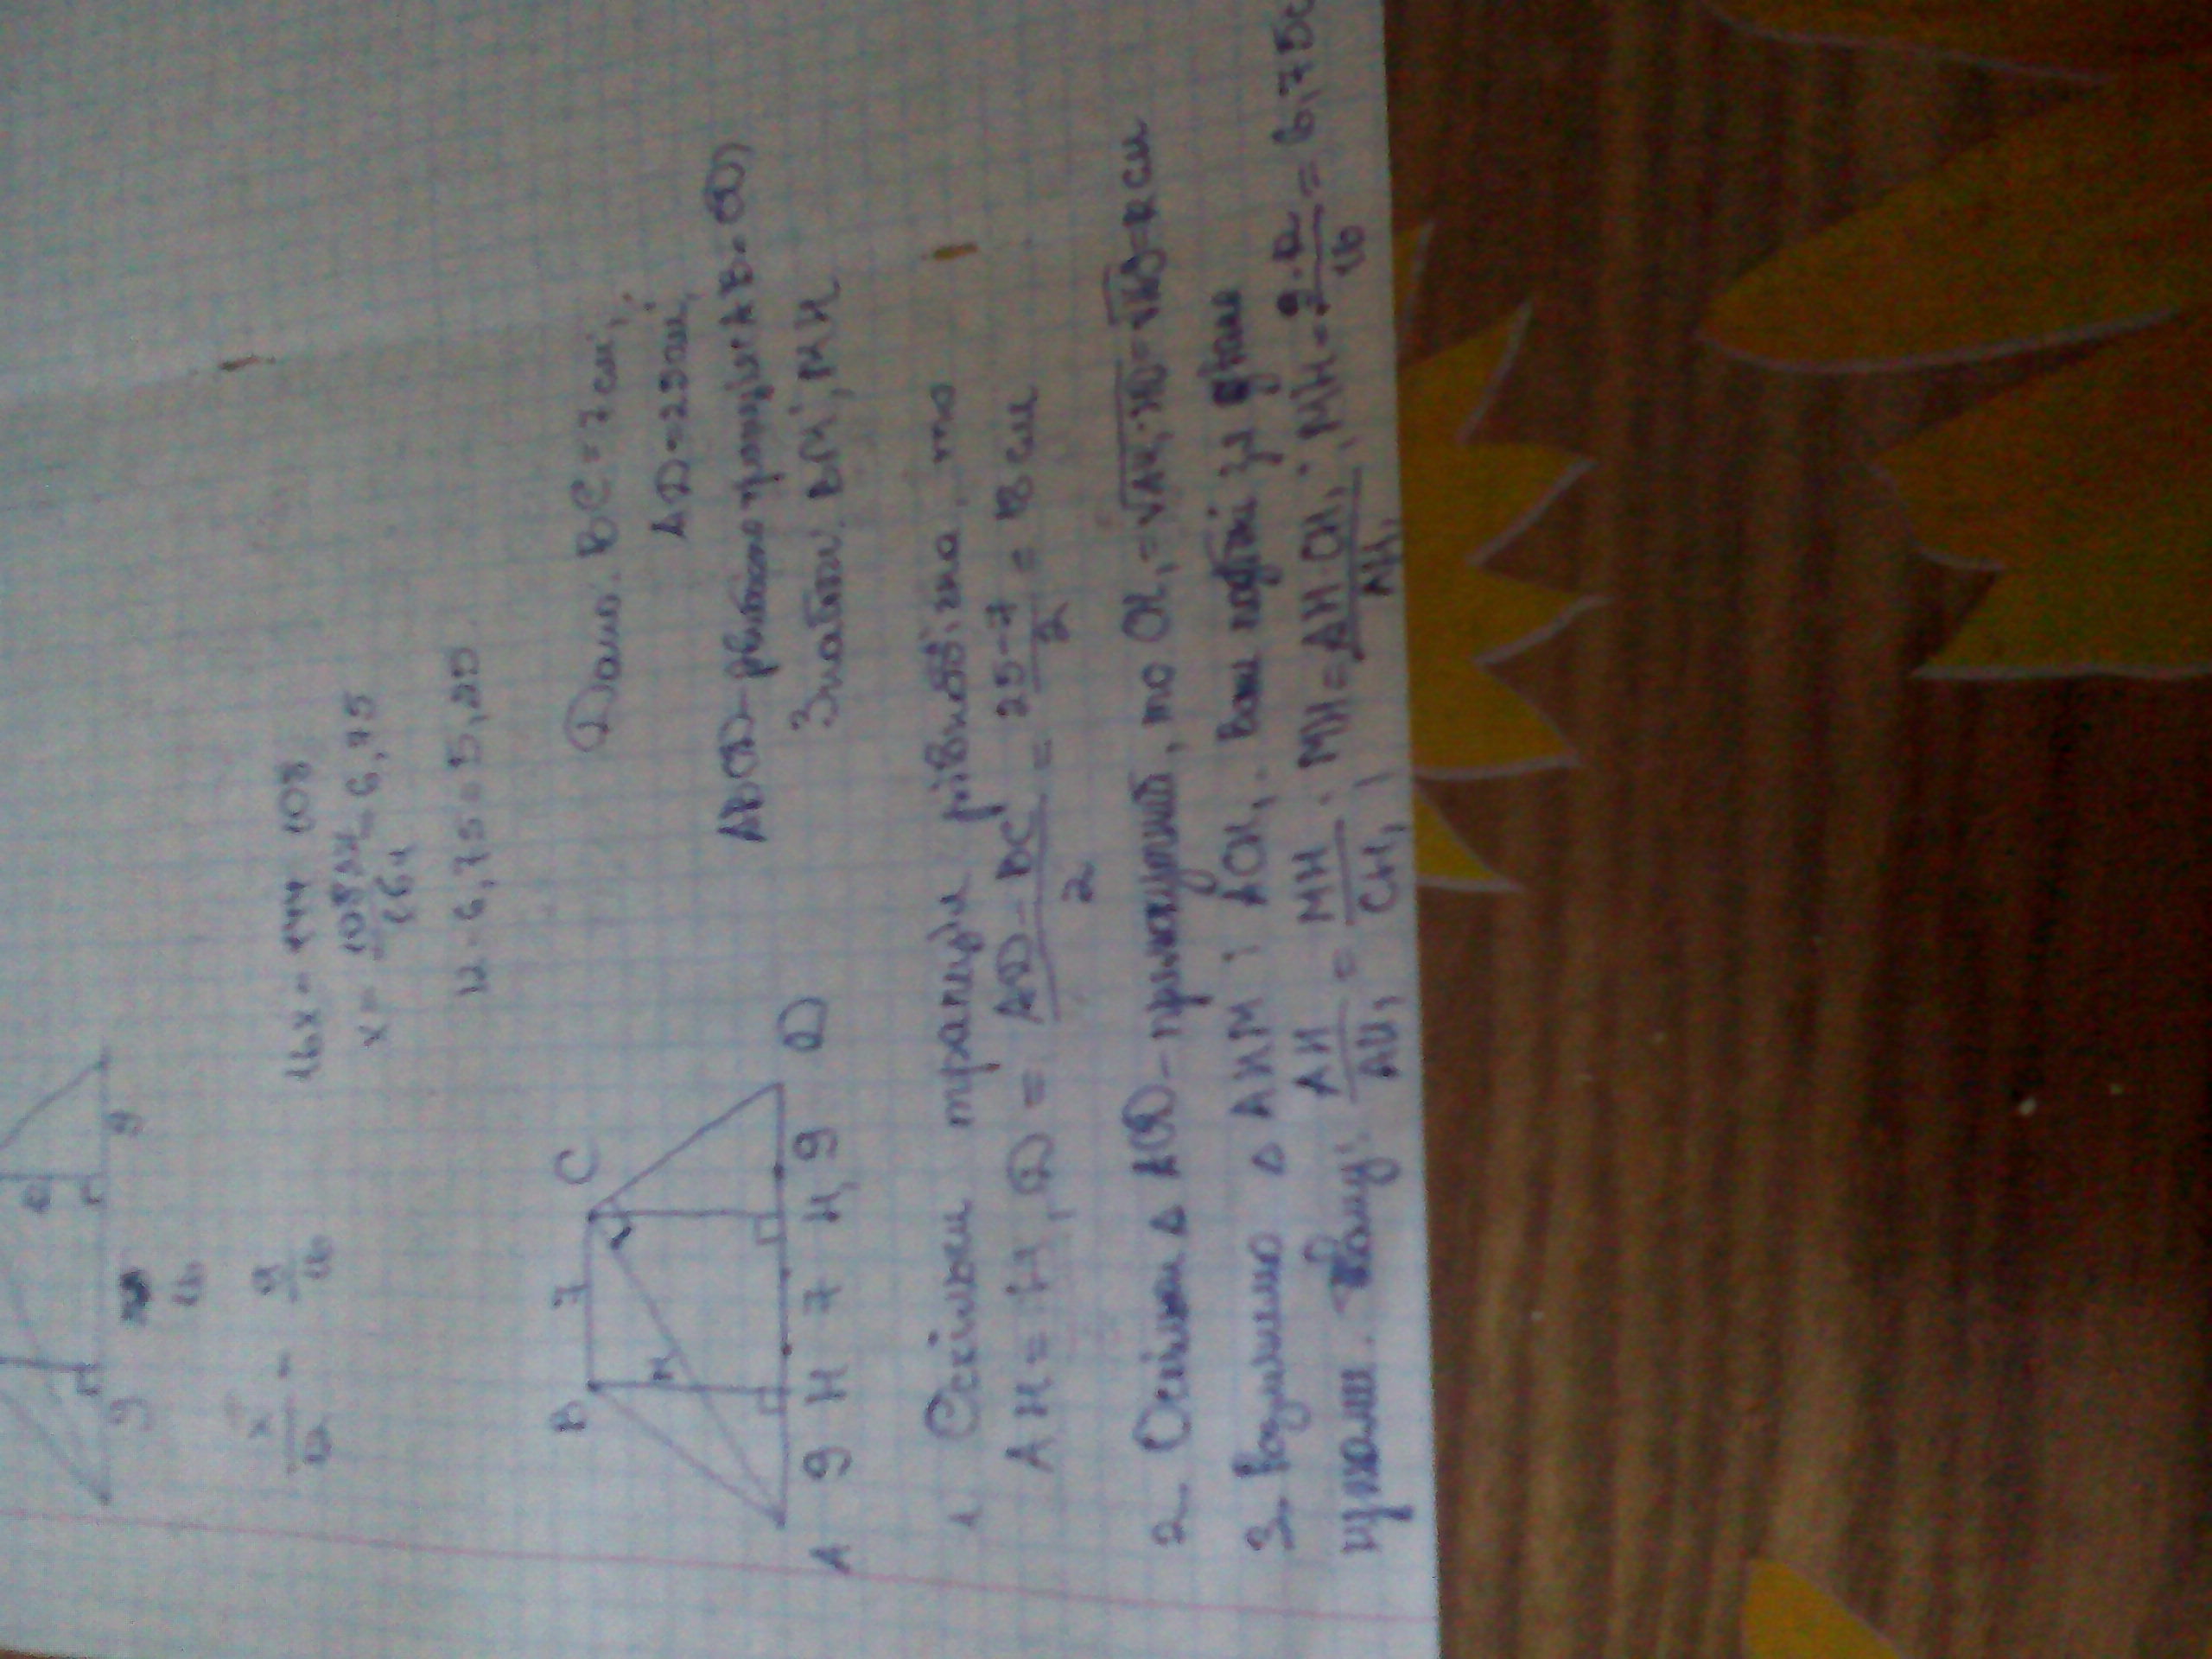 9 16 9
x/12 = 9/16
16x = 144 108
x = 108/16 = 6,75
12 - 6,75 = 5,25
Дано: BC = 7 см,
AD = 25 см,
ABCD - трапеція AB = CD
Знайти: BM, MH
B 7 C
M
A 9 H 7 H₁ 9 D
1 Оскільки трапеція рівнобічна, то
AH = H₁D = AD - BC / 2 = 25 - 7 / 2 = 18 см
2 Оскільки Δ ACD - прямокутний, то CH₁ = √AH₁·H₁D = √16·9 = 12 см
3. Розглянемо Δ AHM і ACH₁. Вони подібні за двома
кутами. Тому: AH/AH₁ = MH/CH₁, MH = AH·CH₁/AH₁; MH = 9·12/16 = 6,75